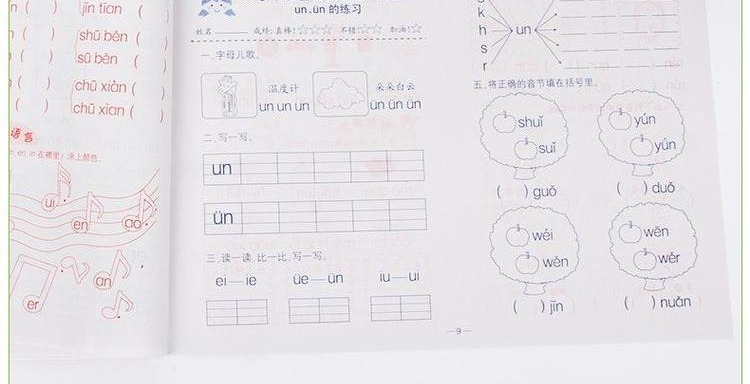 ( ) jīn tiān
( ) shū běn (
( ) sū běn (
( ) chū xiàn (
( ) chū xian (
语言
ui
en
ao
an
er
un、ün 的练习
姓名 成绩:真棒!☆☆☆ 不错!☆☆ 加油!☆
一、字母儿歌。
温度计
un un un
朵朵白云
ün ün ün
二、写一写。
un
ün
三、读一读,比一比,写一写。
ei—ie üe—ün iu—ui
k
h
s
r
un
五、将正确的音节填在括号里。
shuǐ
suǐ
( ) guǒ
yún
yún
( ) duǒ
wéi
wēn
( ) jīn
wēn
wēr
( ) nuǎn
—9—